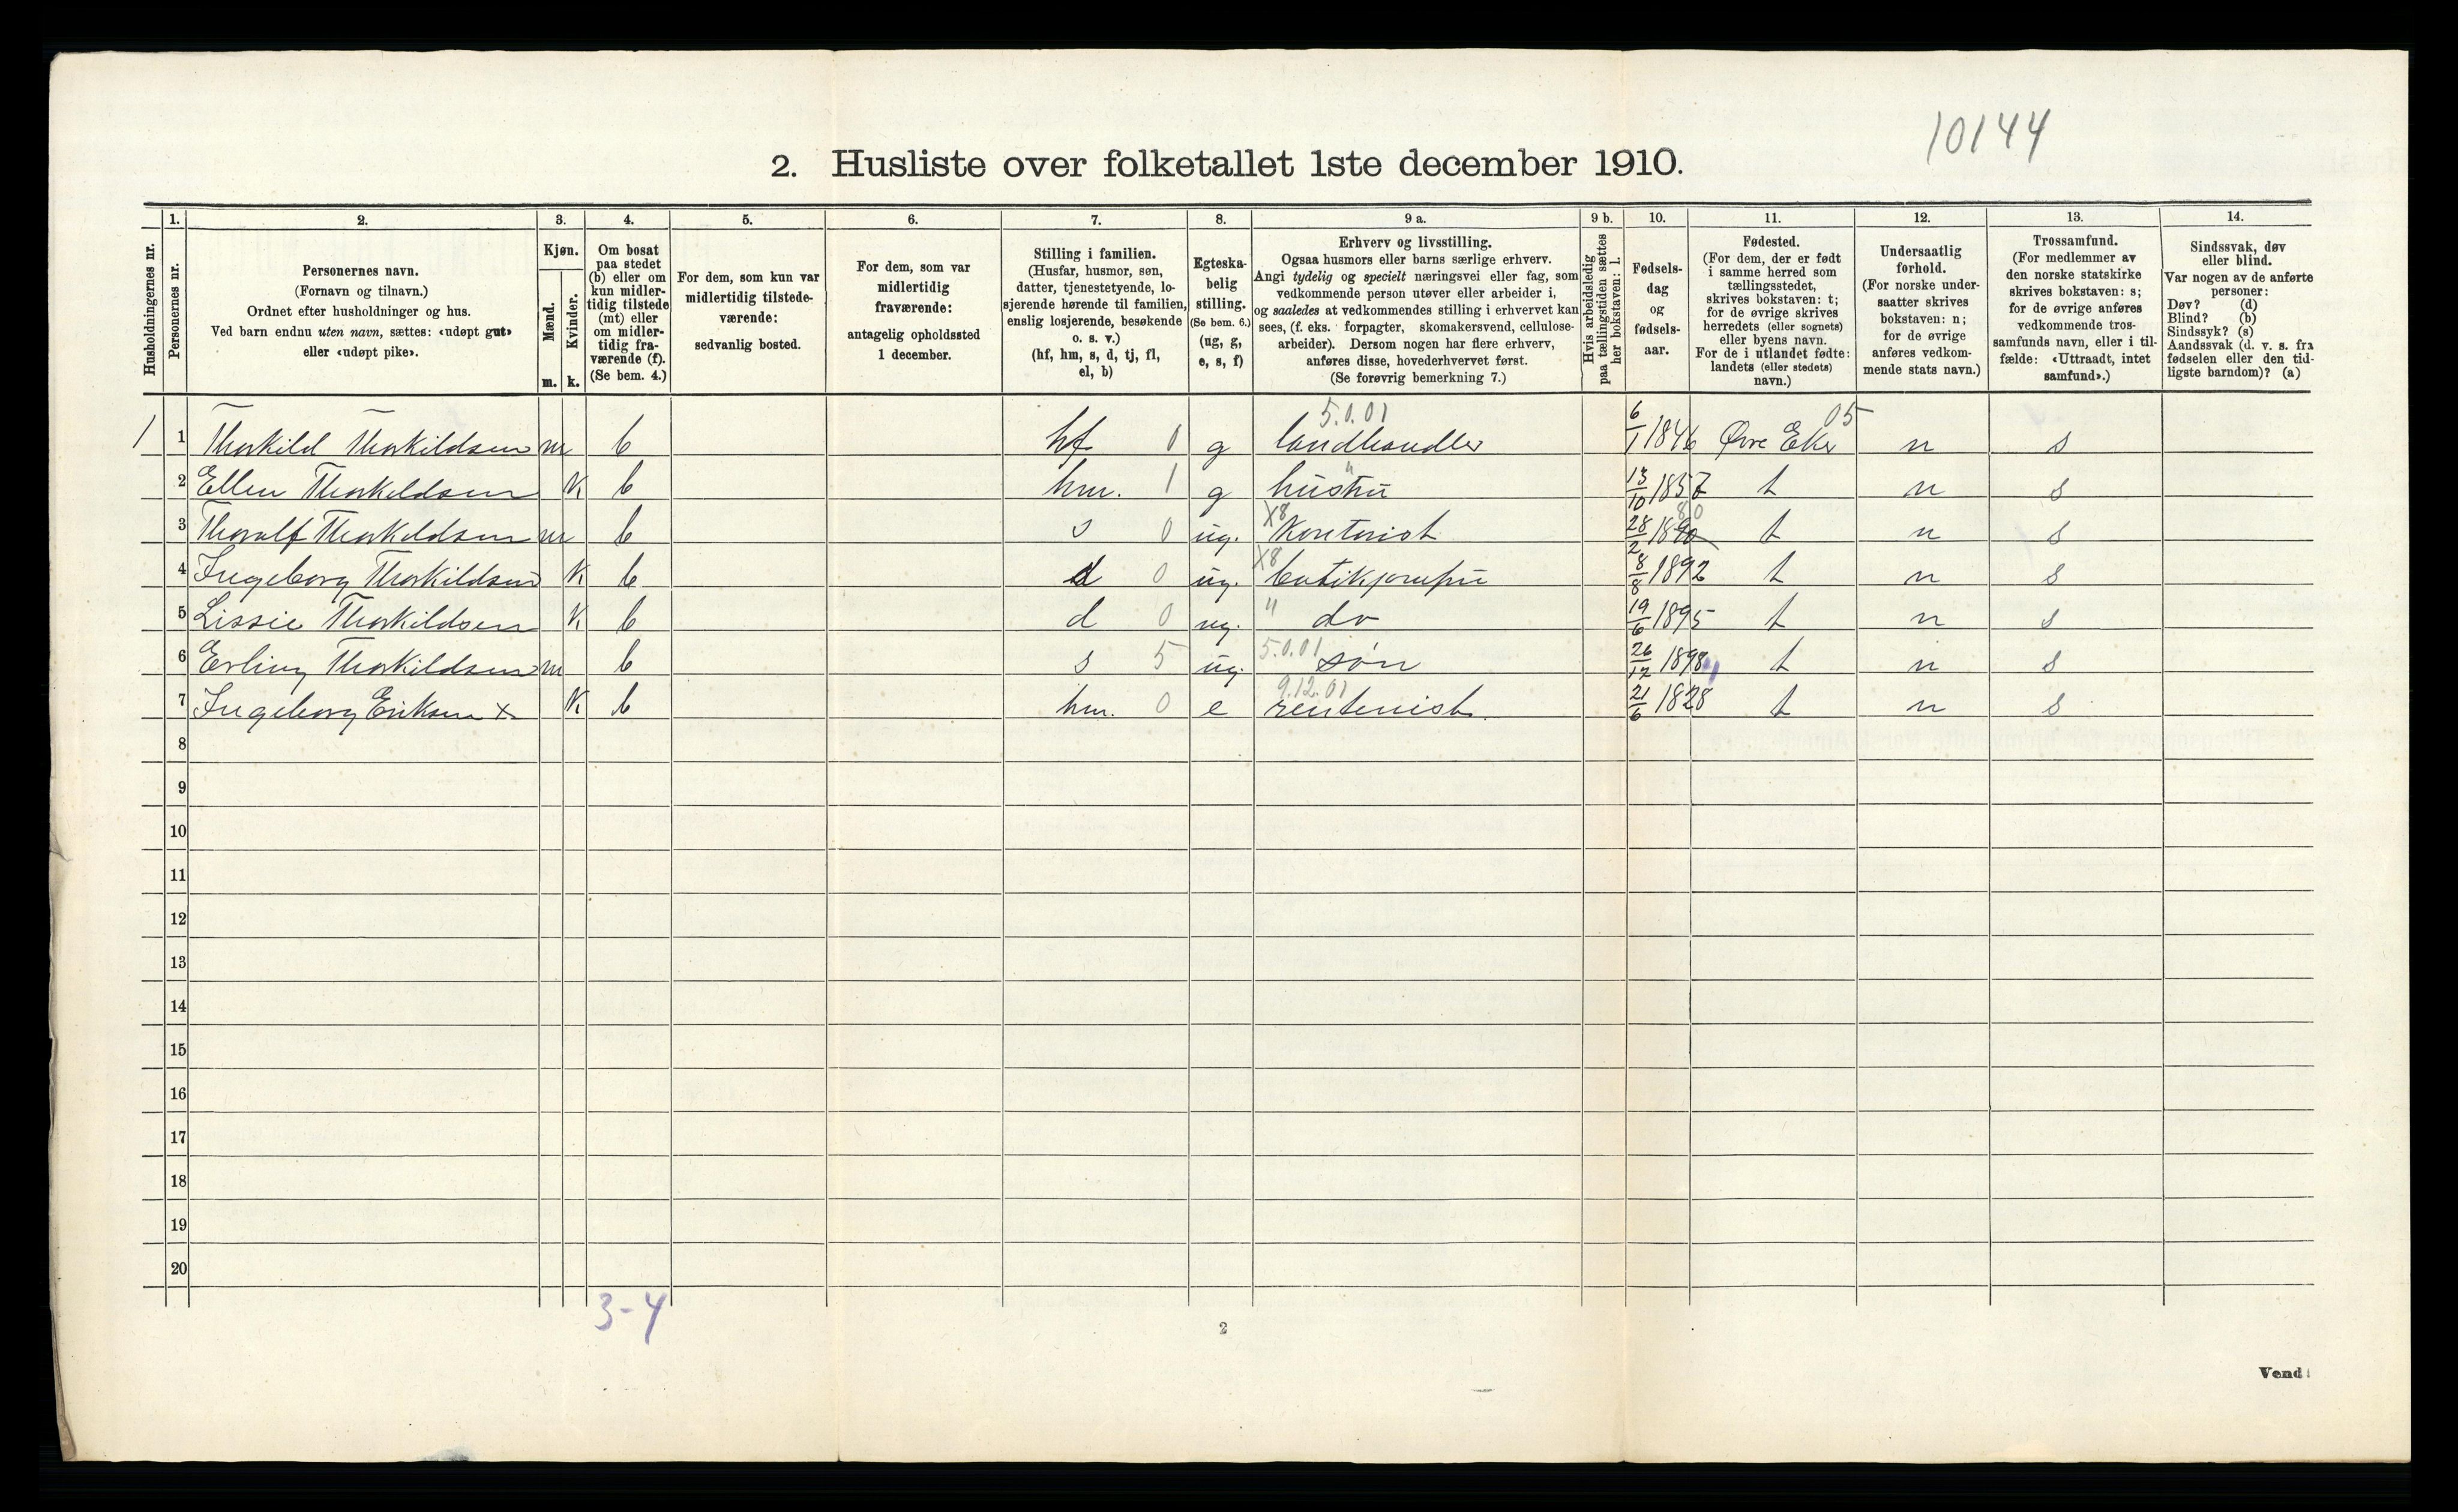 10144
2. Husliste over folketallet 1ste december 1910.
1. 2. 3. 4. 5. 6. 7. 8. 9 a. 9 b. 10. 11. 12. 13. 14.
Husholdningernes nr.
Personernes nr.
Personernes navn.
(Fornavn og tilnavn.)
Ordnet efter husholdninger og hus.
Ved barn endnu uten navn, sættes: «udøpt gut»
eller «udøpt pike».
Kjøn.
Mænd.
Kvinder.
m. k.
Om bosat
paa stedet
(b) eller om
kun midler-
tidig tilstede
(mt) eller
om midler-
tidig fra-
værende (f).
(Se bem. 4.)
For dem, som kun var
midlertidig tilstede-
værende:
sedvanlig bosted.
For dem, som var
midlertidig
fraværende:
antagelig opholdssted
1 december.
Stilling i familien.
(Husfar, husmor, søn,
datter, tjenestetyende, lo-
sjerende hørende til familien,
enslig losjerende, besøkende
o. s. v.)
(hf, hm, s, d, tj, fl,
el, b)
Egteska-
belig
stilling.
(Se bem. 6.)
(ug, g,
e, s, f)
Erhverv og livsstilling.
Ogsaa husmors eller barns særlige erhverv.
Angi tydelig og specielt næringsvei eller fag, som
vedkommende person utøver eller arbeider i,
og saaledes at vedkommendes stilling i erhvervet kan
sees, (f. eks. forpagter, skomakersvend, cellulose-
arbeider). Dersom nogen har flere erhverv,
anføres disse, hovederhvervet først.
(Se forøvrig bemerkning 7.)
Hvis arbeidsledig
paa tællingstiden sættes
her bokstaven: l.
Fødsels-
dag
og
fødsels-
aar.
Fødested.
(For dem, der er født
i samme herred som
tællingsstedet,
skrives bokstaven: t;
for de øvrige skrives
herredets (eller sognets)
eller byens navn.
For de i utlandet fødte:
landets (eller stedets)
navn.)
Undersaatlig
forhold.
(For norske under-
saatter skrives
bokstaven: n;
for de øvrige
anføres vedkom-
mende stats navn.)
Trossamfund.
(For medlemmer av
den norske statskirke
skrives bokstaven: s;
for de øvrige anføres
vedkommende tros-
samfunds navn, eller i til-
fælde: «Uttraadt, intet
samfund».)
Sindssvak, døv
eller blind.
Var nogen av de anførte
personer:
Døv? (d)
Blind? (b)
Sindssyk? (s)
Aandssvak (d. v. s. fra
fødselen eller den tid-
ligste barndom)? (a)
5.0.01 05
1 1 Thorkild Thorkildsen m b hf 0 g landhandler 6/1 1846 Øvre Eker n s
2 Ellen Thorkildsen k b hm. 1 g hustru " 13/10 1857 t n s
3 Thoralf Thorkildsen m b s 0 ug. X8 Kontorist 28/2 1890 80 t n s
4 Ingeborg Thorkildsen k b d 0 ug. X8 butikjomfru 8/8 1892 t n s
5 Lissie Thorkildsen k b d 0 ug. " do 19/6 1895 t n s
6 Erling Thorkildsen m b s 5 ug. 5.0.01 søn 26/12 1898 t n s
7 Ingeborg Eriksen x k b hm. 0 e 9.12.01 rentenist. 21/6 1828 t n s
8
9
10
11
12
13
14
15
16
17
18
19
20
3-4
2
Vend!